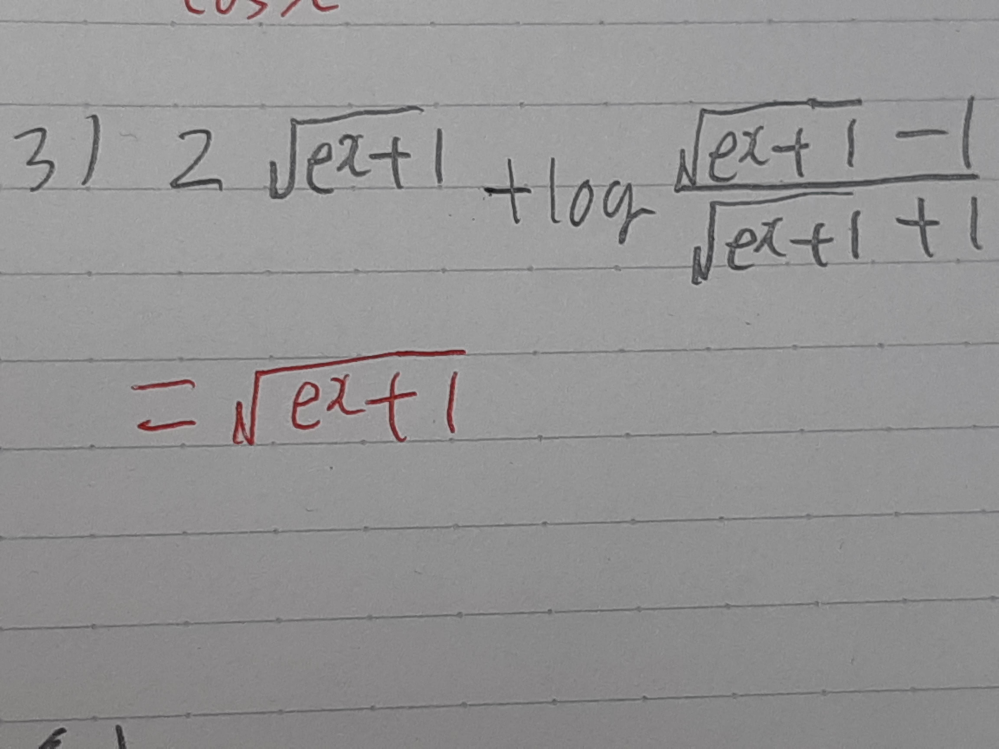 cos x
3) 2√ex+1 + log (√ex+1 - 1)/(√ex+1 + 1)
= √ex+1